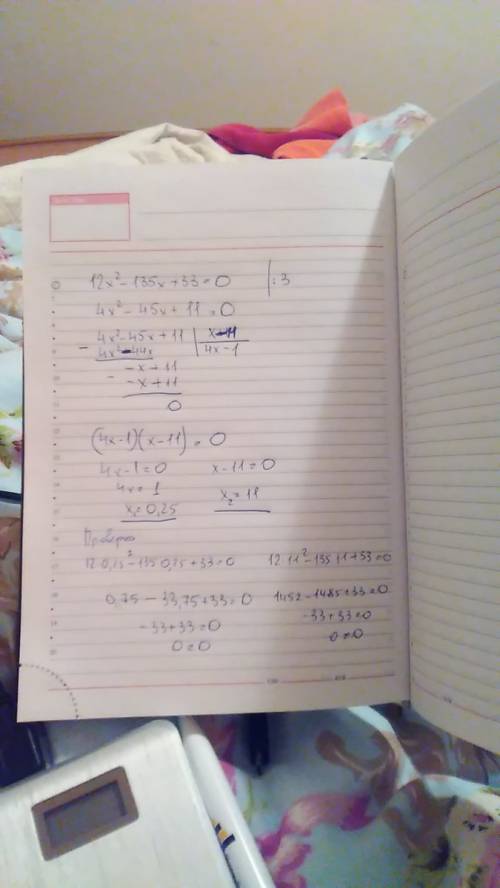 12x² - 135x + 33 = 0 | : 3
4x² - 45x + 11 = 0
4x² - 45x + 11 | x - 11
- 4x² - 44x | 4x - 1
- x + 11
- - x + 11
0
(4x-1)(x-11) = 0
4x-1=0 x-11=0
4x=1 x₂=11
x₁=0,25
Проверка
12 0,25² - 135 0,25 + 33 = 0 12 11² - 135 11 + 33 = 0
0,75 - 33,75 + 33 = 0 1452 - 1485 + 33 = 0
-33+33=0 -33+33=0
0=0 0=0